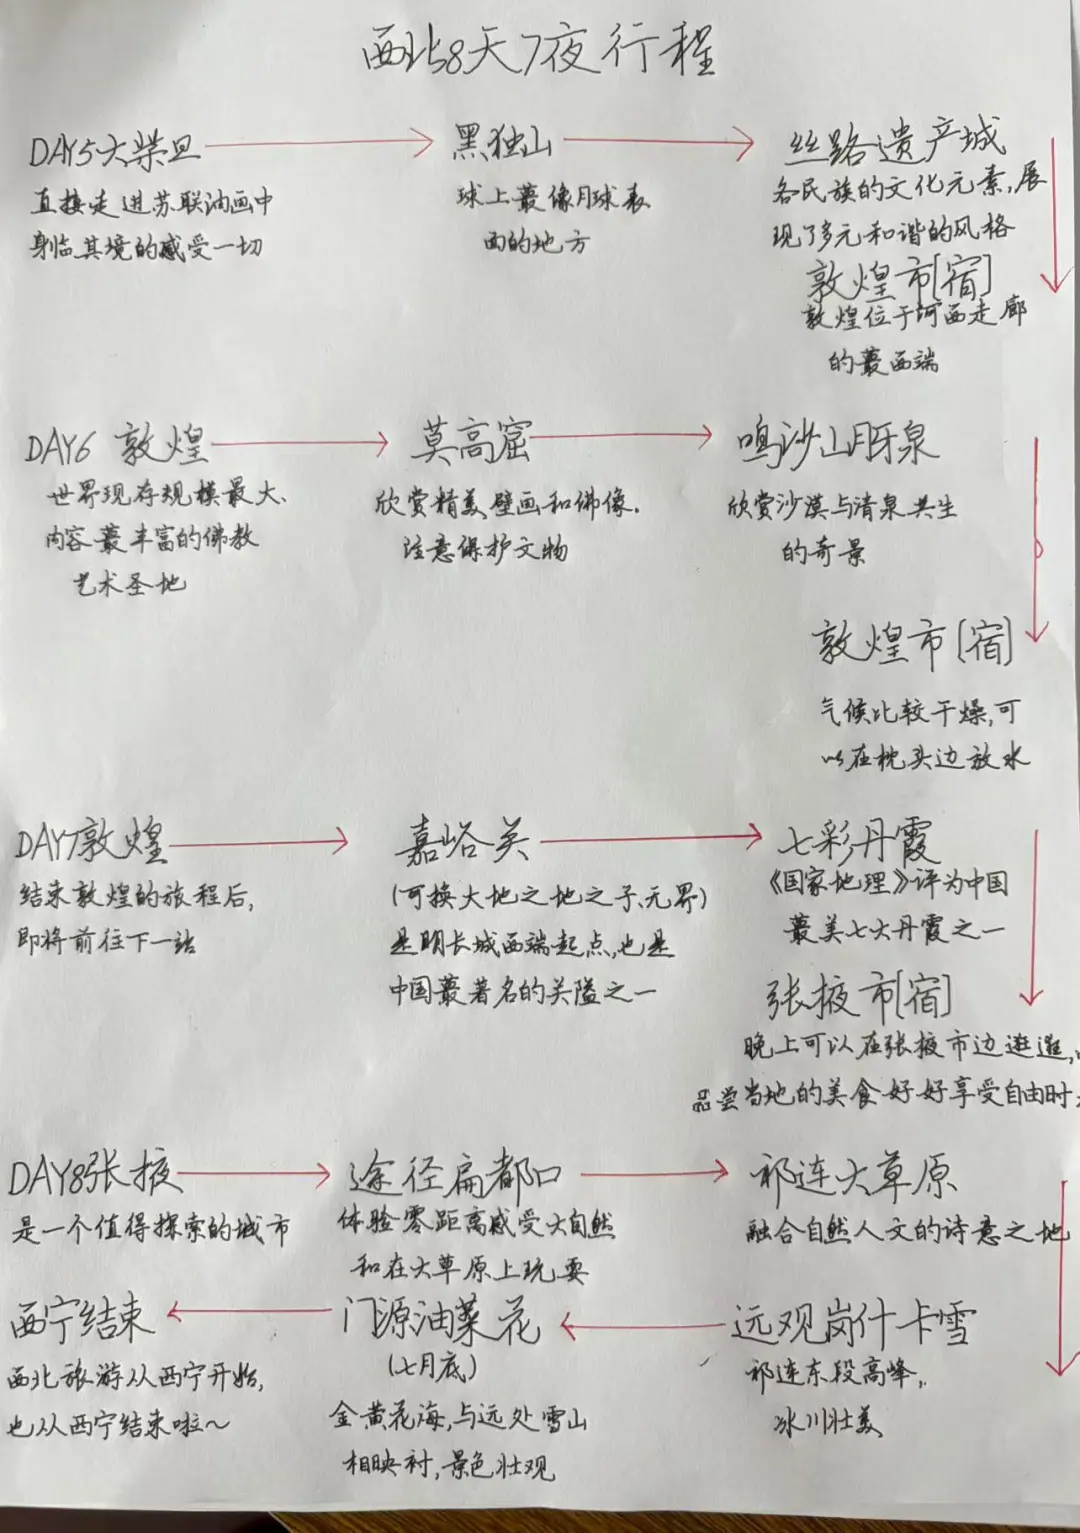 西北8天7夜行程
DAY5大柴旦
直接走进苏联油画中
身临其境的感受一切
黑独山
球上最像月球表
面的地方
丝路遗产城
各民族的文化元素,展
现了多元和谐的风格
敦煌市[宿]
敦煌位于河西走廊
的最西端
DAY6 敦煌
世界现存规模最大、
内容最丰富的佛教
艺术圣地
莫高窟
欣赏精美壁画和佛像.
注意保护文物
鸣沙山月牙泉
欣赏沙漠与清泉共生
的奇景
敦煌市[宿]
气候比较干燥,可
以在枕头边放水
DAY7敦煌
结束敦煌的旅程后,
即将前往下一站
嘉峪关
(可换大地之地之子、无界)
是明长城西端起点,也是
中国最著名的关隘之一
七彩丹霞
《国家地理》评为中国
最美七大丹霞之一
张掖市[宿]
晚上可以在张掖市边逛逛,
品尝当地的美食好好享受自由时
DAY8张掖
是一个值得探索的城市
途径扁都口
体验零距离感受大自然
和在大草原上玩耍
祁连大草原
融合自然人文的诗意之地
远观岗什卡雪
祁连东段高峰,
冰川壮美
门源油菜花
(七月底)
金黄花海,与远处雪山
相映衬,景色壮观
西宁结束
西北旅游从西宁开始,
也从西宁结束啦～